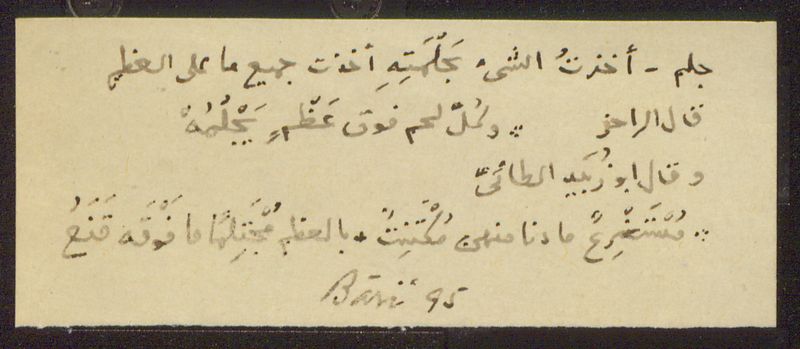 جلم - أخذتُ الشىء بَجَلْمَتِهِ أخذت جميع ما على العظم
قال الراجز ∴ وكُلّ لحم فوق عَظْمٍ يَجْلُمُهْ
وقال ابو زُبَيد الطائىّ
∴ مُسْتَضْرِعٌ ما دنا منهن مُكْتَنِتٌ ∴ بالعظم مُجْتَلِمًا ما فَوْقَه قَنَعُ
Bāriʿ 95